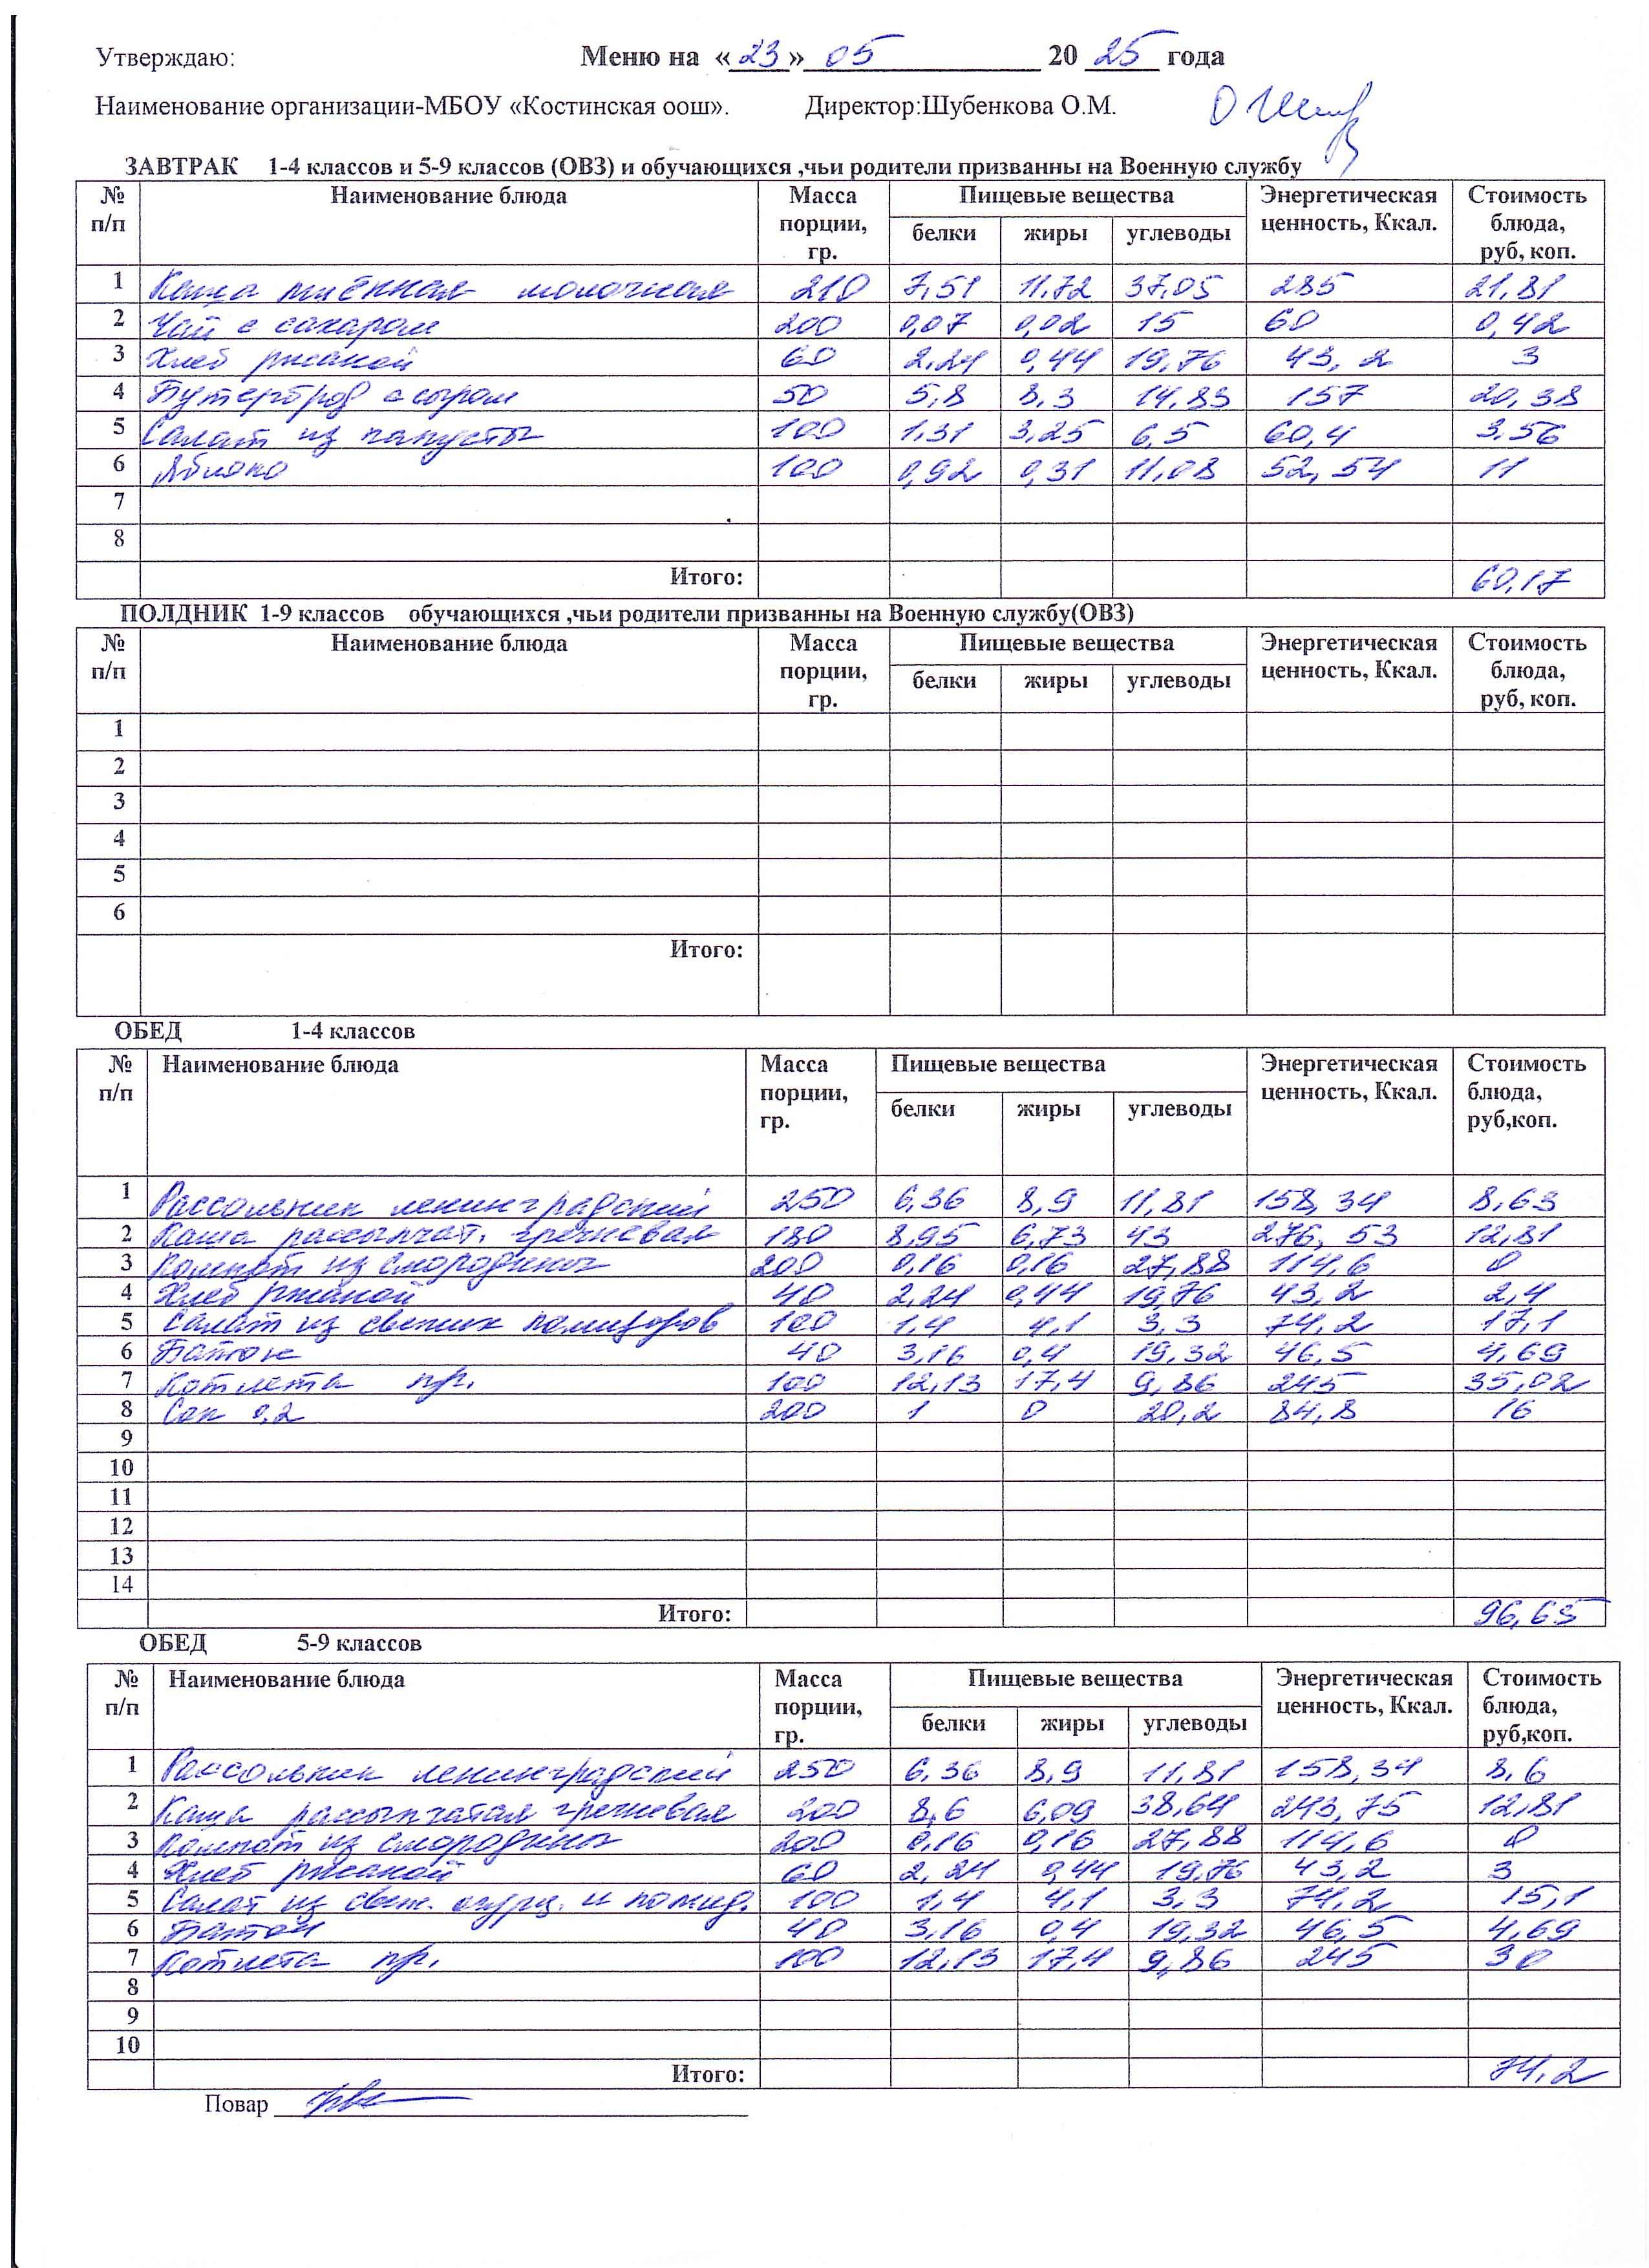 Утверждаю: Меню на «23» 05 2025 года
Наименование организации-МБОУ «Костинская оош». Директор:Шубенкова О.М.
ЗАВТРАК 1-4 классов и 5-9 классов (ОВЗ) и обучающихся ,чьи родители призванны на Военную службу
№ п/п Наименование блюда Масса порции, гр. Пищевые вещества Энергетическая ценность, Ккал. Стоимость блюда, руб, коп.
белки жиры углеводы
1 Каша пшённая молочная 210 7,51 11,72 37,05 285 21,81
2 Чай с сахаром 200 0,07 0,02 15 60 0,42
3 Хлеб ржаной 60 2,24 0,44 19,76 43,2 3
4 Бутерброд с сыром 50 5,8 8,3 14,83 157 20,38
5 Салат из капусты 100 1,31 3,25 6,5 60,4 3,56
6 Яблоко 100 0,92 0,31 11,08 52,54 11
7
8
Итого: 60,17
ПОЛДНИК 1-9 классов обучающихся ,чьи родители призванны на Военную службу(ОВЗ)
№ п/п Наименование блюда Масса порции, гр. Пищевые вещества Энергетическая ценность, Ккал. Стоимость блюда, руб, коп.
белки жиры углеводы
1
2
3
4
5
6
Итого:
ОБЕД 1-4 классов
№ п/п Наименование блюда Масса порции, гр. Пищевые вещества Энергетическая ценность, Ккал. Стоимость блюда, руб,коп.
белки жиры углеводы
1 Рассольник ленинградский 250 6,36 8,9 11,81 158,34 8,63
2 Каша рассыпчат. гречневая 180 8,95 6,73 43 276,53 12,81
3 Компот из смородины 200 0,16 0,16 27,88 114,6 0
4 Хлеб ржаной 40 2,24 0,44 19,76 43,2 2,4
5 Салат из свежих помидоров 100 1,4 4,1 3,3 74,2 17,1
6 Батон 40 3,16 0,4 19,32 46,5 4,69
7 Котлета пр. 100 12,13 17,4 9,86 245 35,02
8 Сок 0,2 200 1 0 20,2 84,8 16
9
10
11
12
13
14
Итого: 96,65
ОБЕД 5-9 классов
№ п/п Наименование блюда Масса порции, гр. Пищевые вещества Энергетическая ценность, Ккал. Стоимость блюда, руб,коп.
белки жиры углеводы
1 Рассольник ленинградский 250 6,36 8,9 11,81 158,34 8,6
2 Каша рассыпчатая гречневая 200 8,6 6,09 38,64 243,75 12,81
3 Компот из смородины 200 0,16 0,16 27,88 114,6 0
4 Хлеб ржаной 60 2,24 0,44 19,76 43,2 3
5 Салат из свеж. огурц. и помид. 100 1,4 4,1 3,3 74,2 15,1
6 Батон 40 3,16 0,4 19,32 46,5 4,69
7 Котлета пр. 100 12,13 17,4 9,86 245 30
8
9
10
Итого: 74,2
Повар